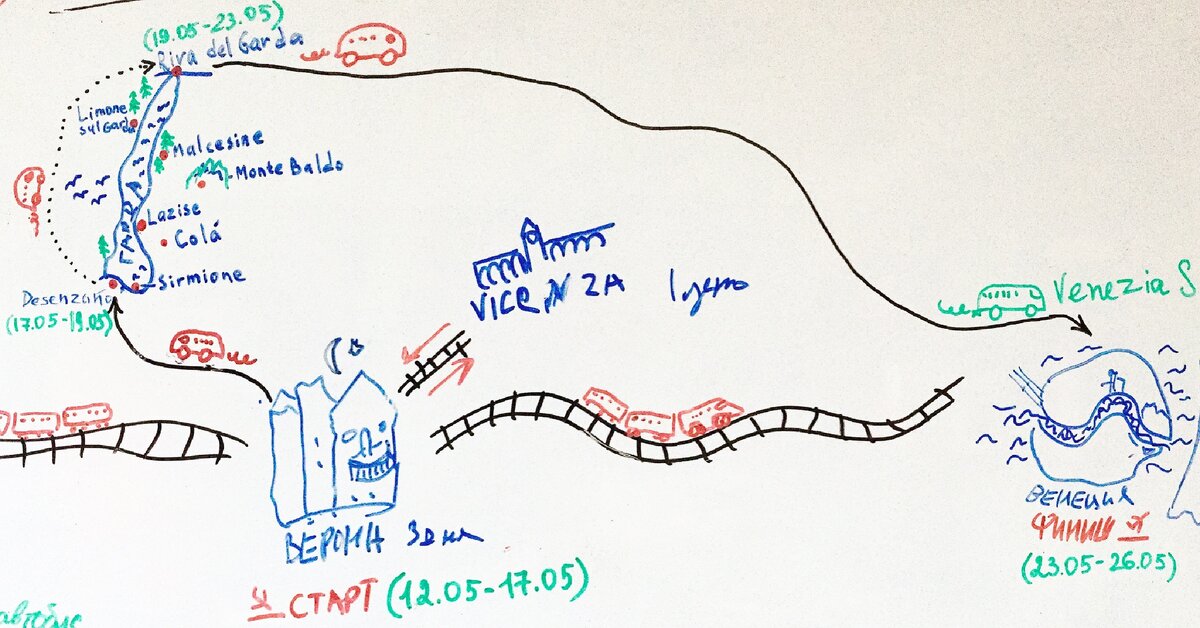 (19.05-23.05)
Riva del Garda
Limone
sul Garda
Malcesine
Monte Baldo
ГАРДА
Lazise
Colá
Sirmione
Desenzano
(17.05-19.05)
VICENZA
Venezia S
ВЕРОНА 3 дня
СТАРТ (12.05-17.05)
ВЕНЕЦИЯ
ФИНИШ
(23.05-26.05)
автобус